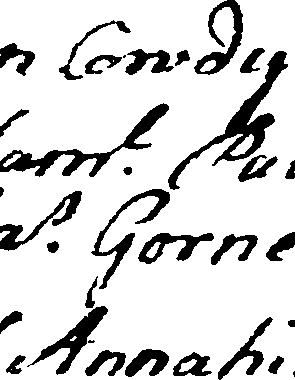 n Cowdy
am.l Pa
a.s Gorne
Annahi